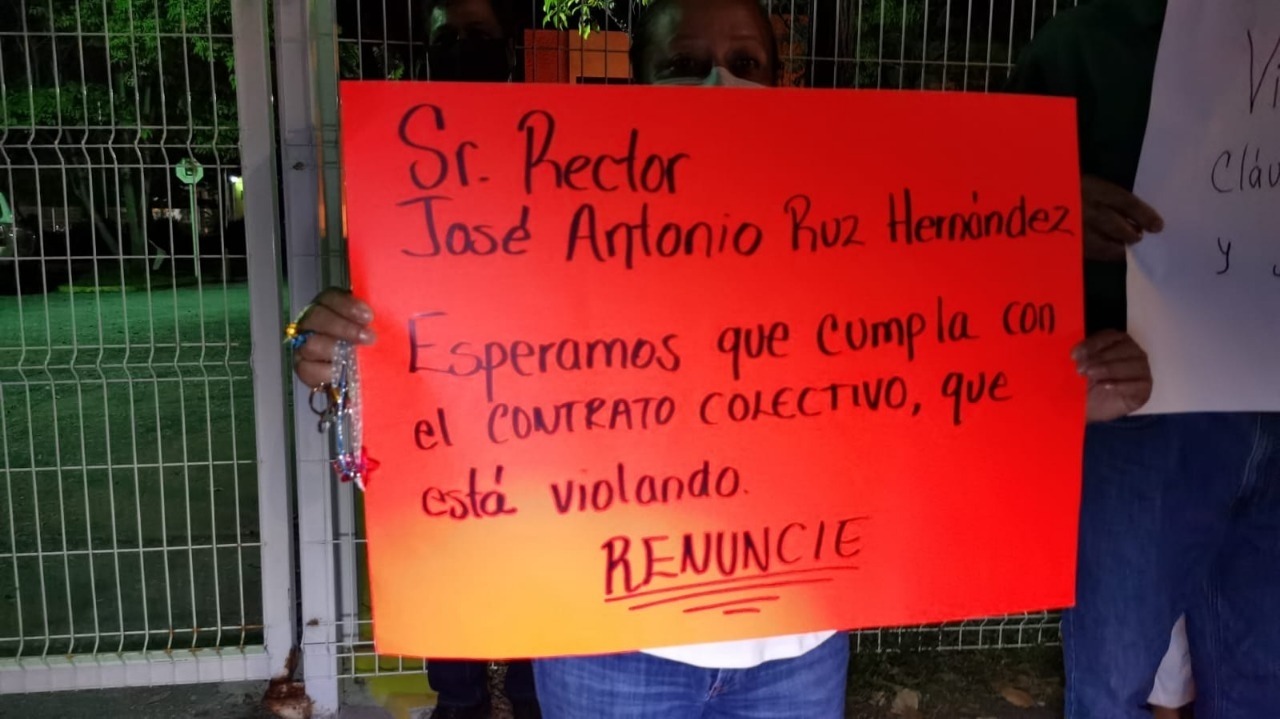 Sr. Rector
José Antonio Ruz Hernández
Esperamos que cumpla con
el CONTRATO COLECTIVO, que
está violando.
RENUNCIE
y